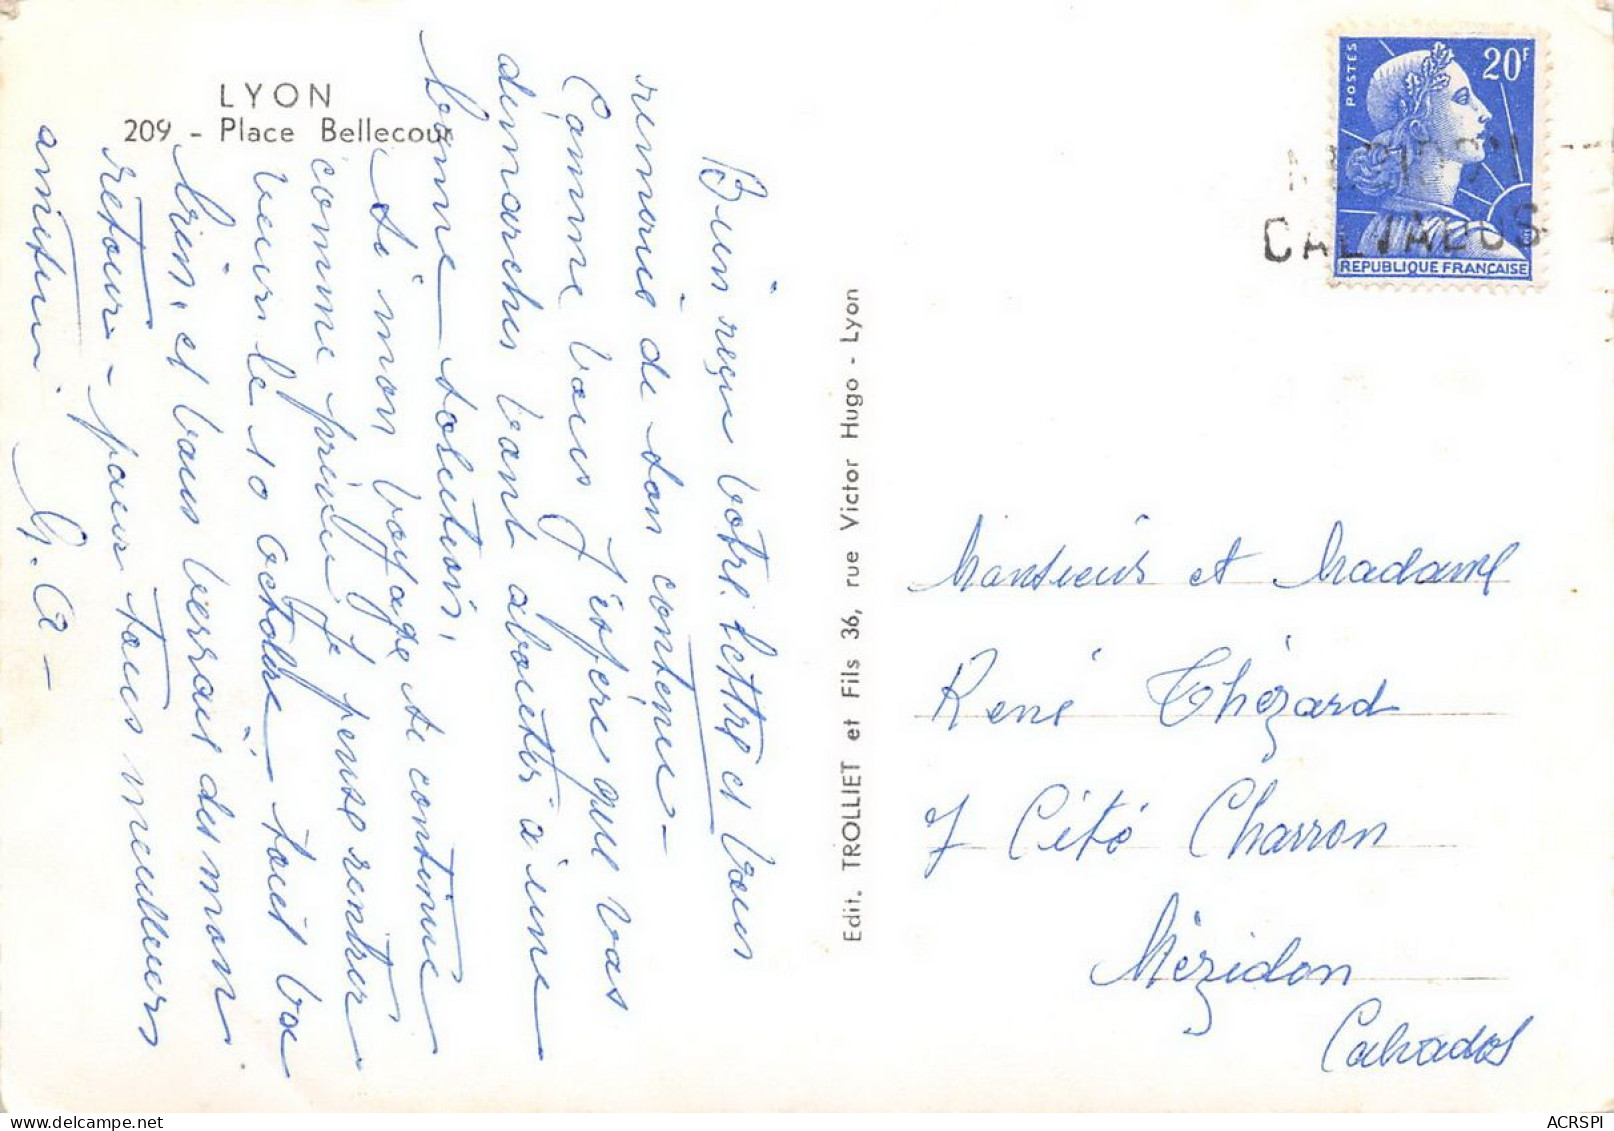 LYON
209 - Place Bellecour
Bien reçu votre lettre et vous
remercie de son contenu -
Comme vous j'espère que vos
démarches vont aboutir à une
bonne solution.
Si mon voyage se continue
comme prévu je pense rentrer
vers le 10 octobre tout va
bien, et vous verrais dès mon
retour - pour tous meilleurs
amitiés.
G. A -
Edit. TROLLIET et Fils 36, rue Victor Hugo - Lyon
POSTES
20F
REPUBLIQUE FRANÇAISE
MEZIDON
CALVADOS
Monsieur et Madame
René Thézard
7 Cité Charron
Mézidon
Calvados
ACRSPI